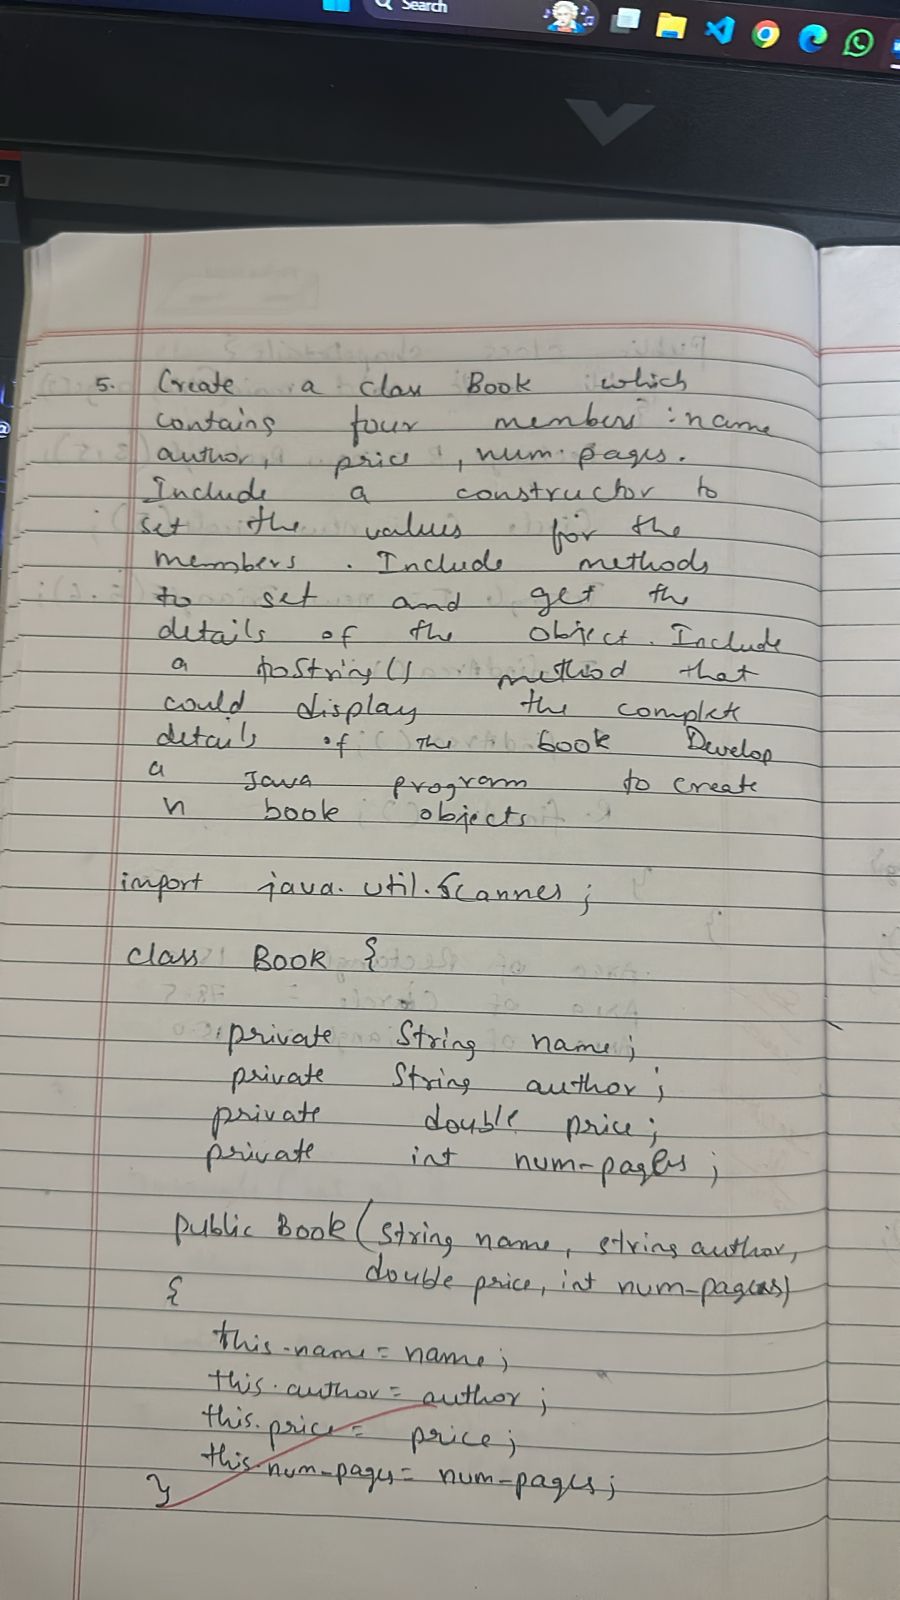 Search
5. Create a class Book which
contains four members : name
author, price, num-pages.
Include a constructor to
set the values for the
members. Include methods
to set and get the
details of the object. Include
a toString() method that
could display the complete
details of the book Develop
a Java program to create
n book objects
import java.util.Scanner;
class Book {
private String name;
private String author;
private double price;
private int num-pages;
public Book (String name, string author,
double price, int num-pages)
{
this.name = name;
this.author = author;
this.price = price;
this.num-pages = num-pages;
}